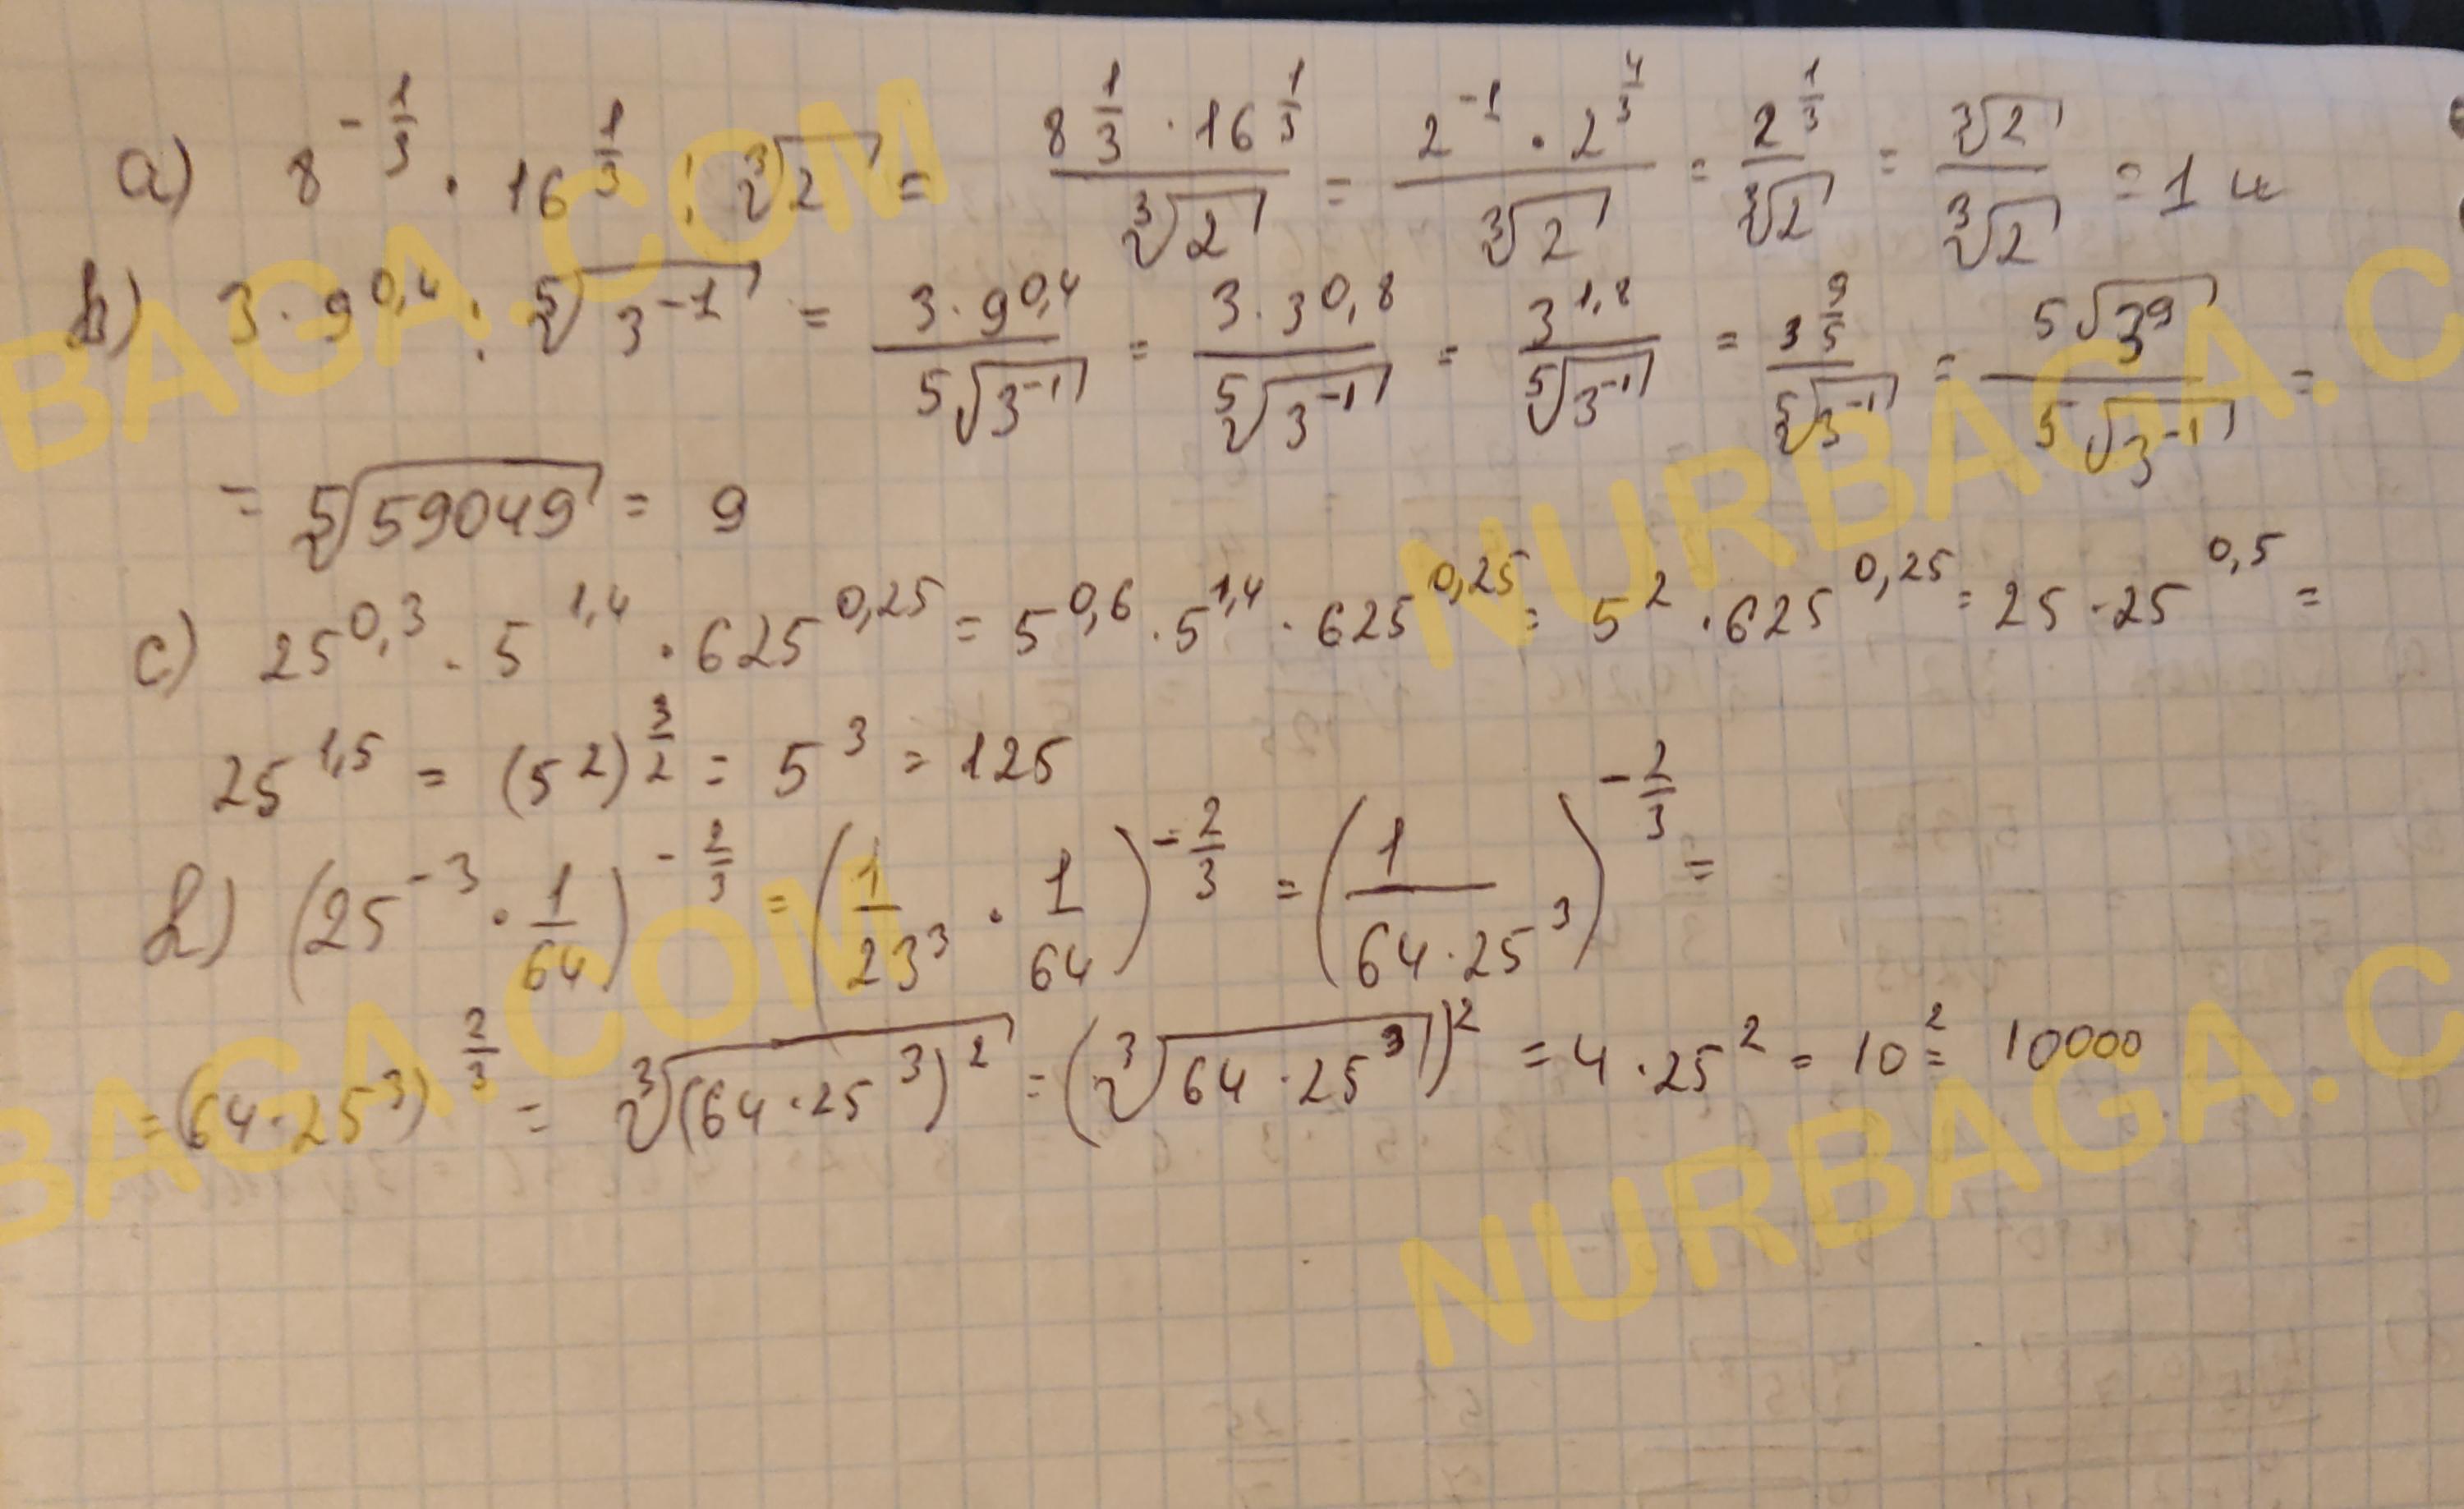 a) 8^(-1/3) · 16^(1/3) : ∛2 = (8^(1/3) · 16^(1/3))/∛2 = (2^(-1) · 2^(4/3))/∛2 = 2^(1/3)/∛2 = ∛2/∛2 = 1
b) 3 · 9^(0,4) : ⁵√(3^(-1)) = (3 · 9^(0,4))/⁵√(3^(-1)) = (3 · 3^(0,8))/⁵√(3^(-1)) = 3^(1,8)/⁵√(3^(-1)) = 3^(9/5)/⁵√(3^(-1)) = ⁵√(3^9)/⁵√(3^(-1)) =
= ⁵√59049 = 9
c) 25^(0,3) · 5^(1,4) · 625^(0,25) = 5^(0,6) · 5^(1,4) · 625^(0,25) = 5^2 · 625^(0,25) = 25 · 25^(0,5) =
25^(1,5) = (5^2)^(3/2) = 5^3 = 125
d) (25^(-3) · 1/64)^(-2/3) = (1/23^3 · 1/64)^(-2/3) = (1/(64 · 25^3))^(-2/3) =
= (64 · 25^3)^(2/3) = ∛((64 · 25^3)^2) = (∛(64 · 25^3))^2 = 4 · 25^2 = 10^2 = 10000
BAGA.COM
NURBAGA.C
BAGA.COM
NURBAGA.C